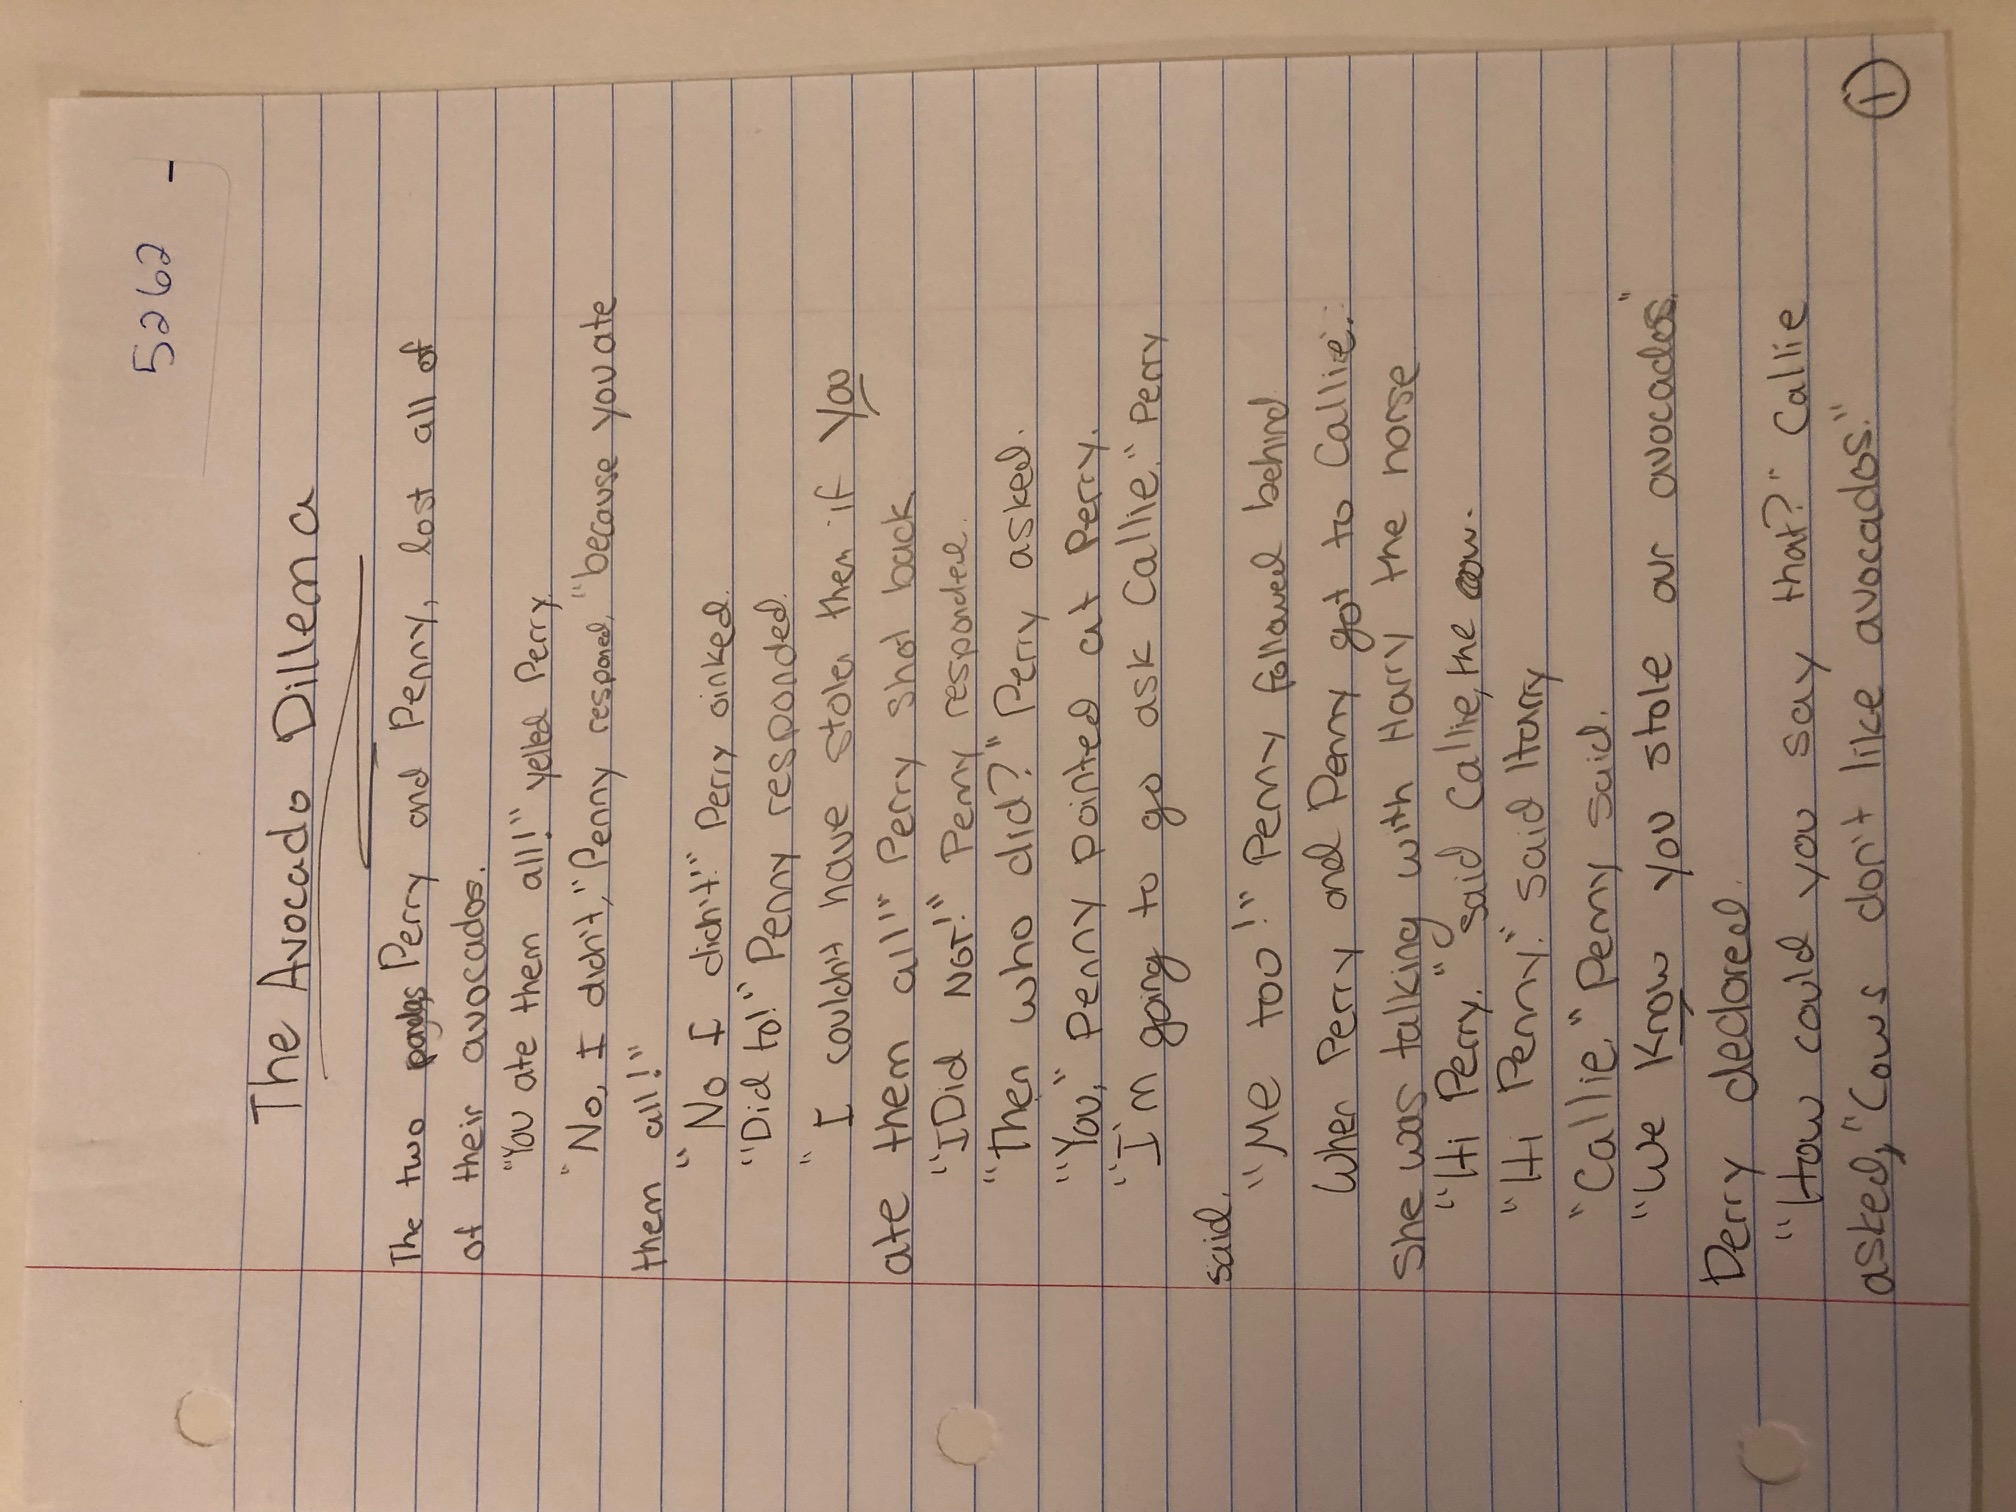 5262 -
The Avocado Dillema
The two pandas Perry and Penny, lost all of
of their avocados.
"You ate them all!" yelled Perry.
"No, I didn't," Penny responed, "because you ate
them all!"
"No I didn't!" Perry oinked.
"Did to!" Penny responded.
"I couldn't have stolen them if you
ate them all!" Perry shot back
"I Did NOT!" Penny responded.
"Then who did?" Perry asked.
"You," Penny pointed at Perry.
"I'm going to go ask Callie." Perry
said.
"Me too!" Penny followed behind
When Perry and Penny got to Callie.
She was talking with Harry the horse
"Hi Perry." said Callie, the cow.
"Hi Penny." said Harry
"Callie," Penny said.
"We know you stole our avocados."
Perry declared.
"How could you say that?" Callie
asked, "Cows don't like avocados."
1